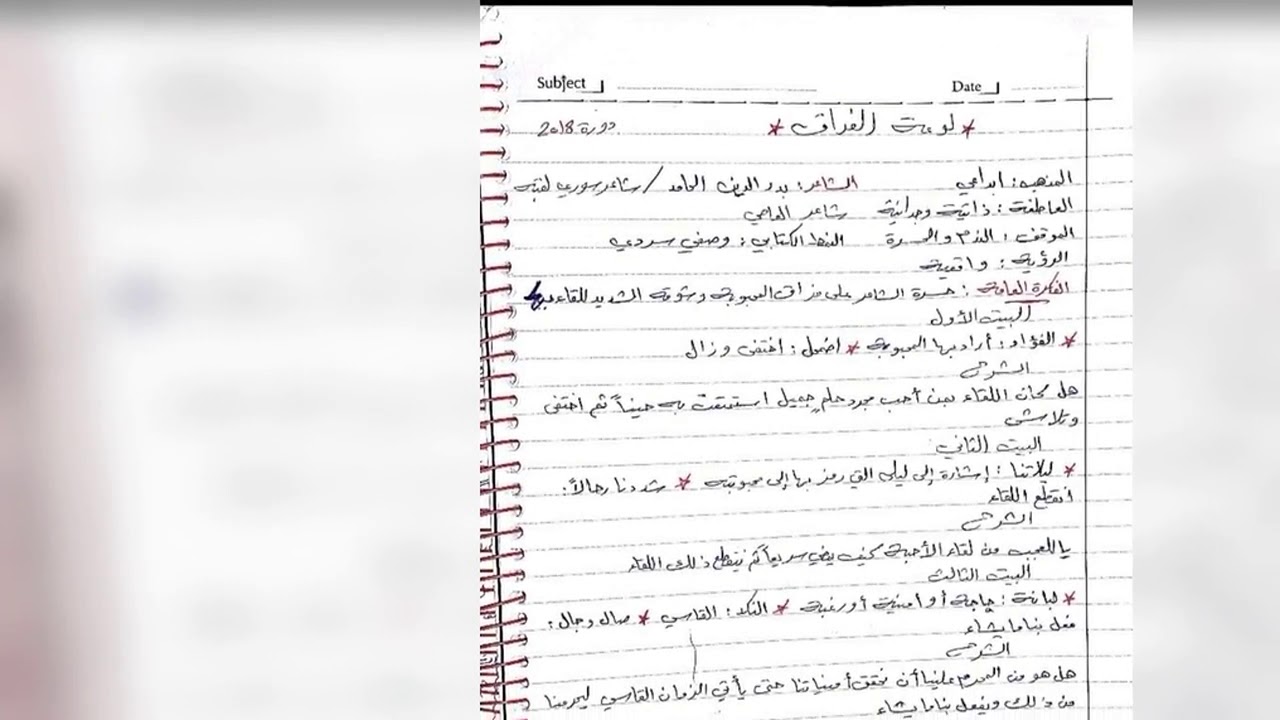 Subject Date
* لوعة الفراق * دورة 2018
المذهب: ابداعي الشاعر: بدر الدين الحامد / شاعر سوري لقبه
العاطفة: ذاتية وجدانية شاعر العاصي
الموقف: الندم والحسرة النمط الكتابي: وصفي سردي
الرؤية: واقعية
الفكرة العامة: حسرة الشاعر على فراق المحبوبة وشوقه الشديد للقاء بها
البيت الأول
* الفؤاد: أراد بها المحبوبة * اضمحل: اختفى وزال
الشرح
هل كان اللقاء بمن أحب مجرد حلمٍ جميل استمتعت به حيناً ثم اختفى
وتلاشى
البيت الثاني
* ليلاتنا: إشارة إلى ليلى التي رمز بها إلى محبوبته * شددنا رحالاً:
انقطع اللقاء
الشرح
يا للعجب من لقاء الأحبة كيف يمضي سريعاً ثم ينقطع ذلك اللقاء
البيت الثالث
* لبانة: حاجة أو امنية أو رغبة * النكد: القاسي * صال وجال:
فعل بنا ما يشاء
الشرح
هل هو من المحرم علينا أن نحقق أمنياتنا حتى يأتي الزمان القاسي ليحرمنا
من ذلك ويفعل بنا ما يشاء